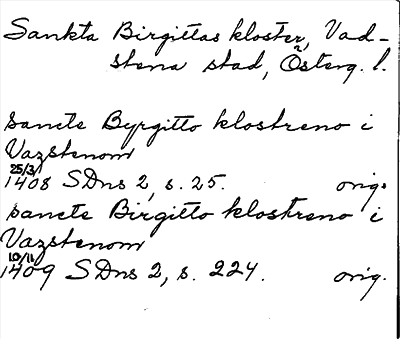 Sankta Birgittas kloster, Vad-
stena stad, Österg. l.
sancte Byrgitto klostreno i
Vazstenom
25/3
1408 SDns 2, s. 25. orig.
sancte Birgitto klostreno i
Vazstenom
10/11
1409 SDns 2, s. 224. orig.